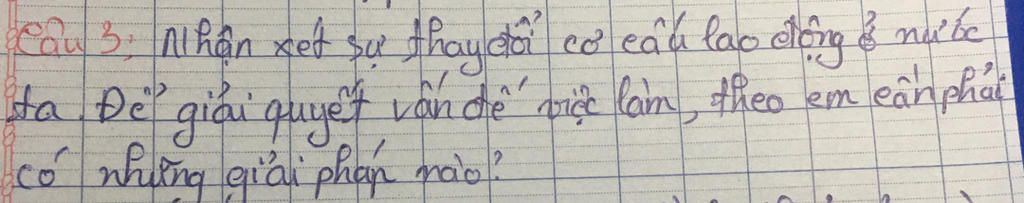 Câu 3: Nhận xét sự thay đổi cơ cấu lao động ở nước
ta. Để giải quyết vấn đề việc làm, theo em cần phải
có những giải pháp nào?